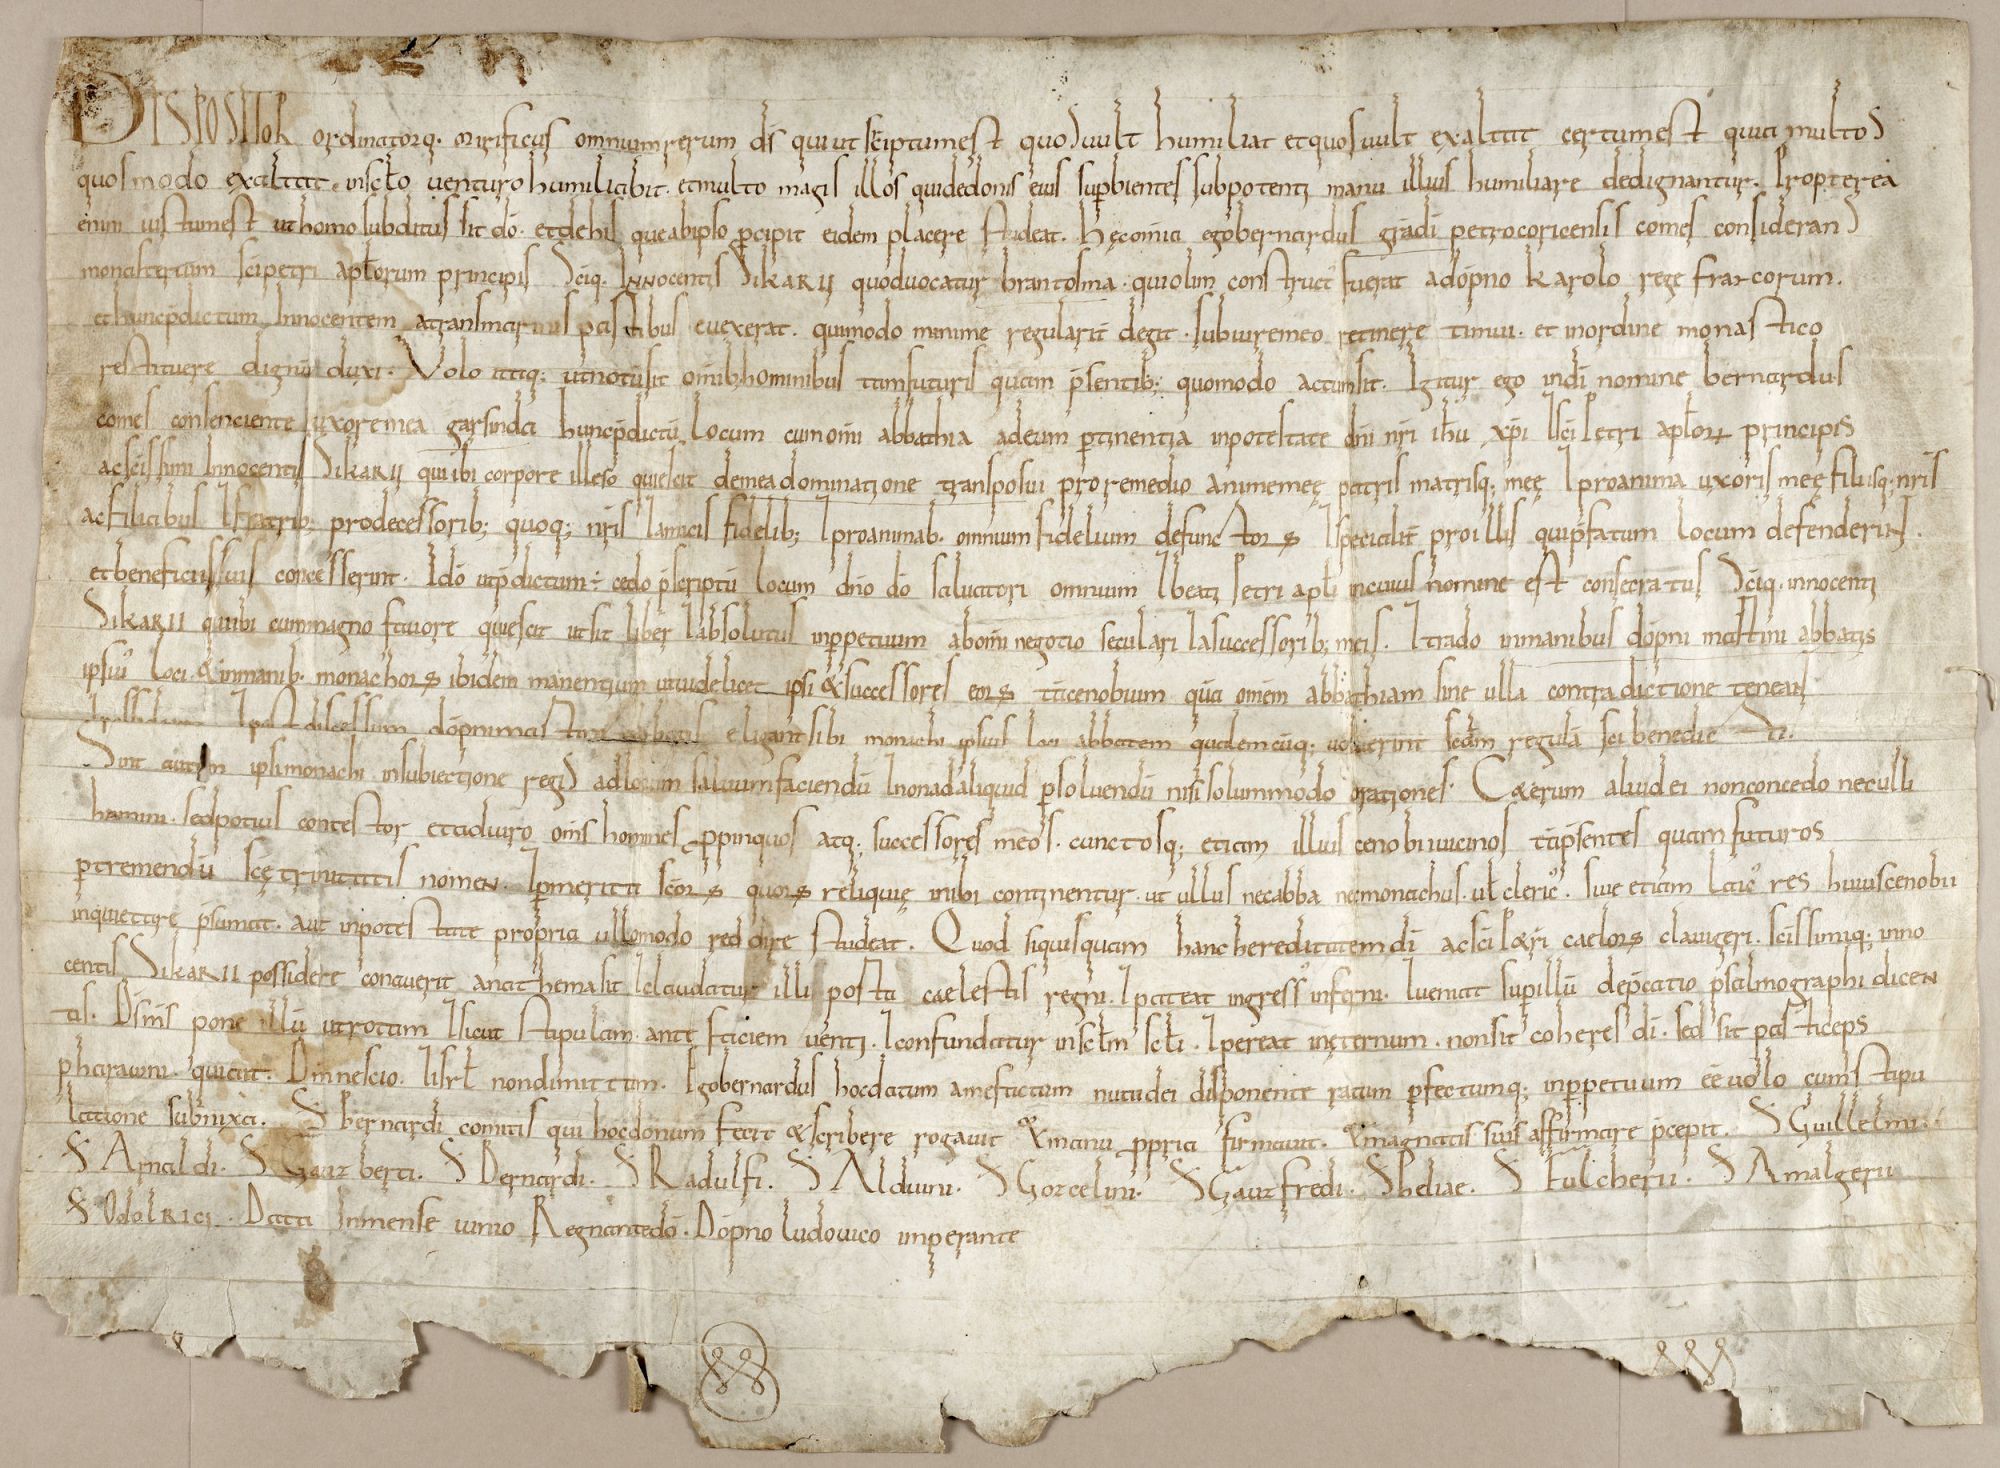 DISPOSITOR ordinatorq. mirificus omnium rerum ds qui ut scriptum est quod vult humiliat et quos vult exaltat certum est quia multos
quos modo exaltat in sclo venturo humiliabit. et multo magis illos qui de donis eius supbientes sub potenti manu illius humiliare dedignantur. Propterea
enim iustum est ut homo subditus sit do. et de his que ab ipso pcipit eidem placere studeat. Hec omia ego bernardus gradi petrocoricensis comes considerans
monasterium sci petri aplorum principis sciq. INNocentis SikARII quod vocatur brantosma. qui olim construct fuerat a dopno karolo rege francorum.
et hunc pdictum Innocentem a transmarinis partibus evexerat. qui modo minime regularit degit. sub iure meo retinere timui. et in ordine monastico
restituere dignu duxi. Volo itaq; ut notu sit omib; hominibus tam futuris quam psentib; quomodo actum sit. Igitur ego in di nomine bernardus
comes consenciente uxore mea garsinda hunc pdictu locum cum omi abbathia ad eum ptinentia in potestate dni nri ihu xpi l sci Petri aplor principis
ac scissimi Innocentis SikARII qui ibi corpore illeso quiescit de mea dominatione transposui pro remedio anime mee patris matrisq; mee l pro anima uxoris mee filiisq; nris
ac filiabus l fratrib; prodecessorib; quoq; nris l amicis fidelib; l pro animab. omnium fidelium defunctors l specialit pro illis qui pfatum locum defenderint.
et beneficiis suis concesserint. Ido ut pdictum: cedo pscriptu locum dno do salvatori omnium l beati Petri apli in cuius nomine est consecratus Sciq. innocenti
SikARII qui ibi cum magno favore quiescit ut sit liber l absolutus in ppetuum ab omi negotio seculari l a successorib; meis. l trado in manibus dopni martini abbatis
ipsius loci. & in manib. monachors ibidem manentium ut videlicet ipsi & successores eors ta cenobium qua omem abbathiam sine ulla contradictione teneant
l possideant l post discessum dopni martini abbatis eligant sibi monachi ipsius loci abbatem quidemcuq; voluerint scdm regula sci benedicti.
Sint autem ipsi monachi in subiectione regis ad locum salvum faciendu l non ad aliquid psolvendu nisi solummodo orationes. C&erum alii dei non concedo nec ulli
homini. sed potius contestor et adiuro omis homines ppinquos atq; successores meos. cunctosq; etiam illius cenobii vicinos ta psentes quam futuros
p tremendu sce trinitatis nomen. l p merita scors quors reliquie inibi continentur. ut ullus nec abba nec monachus. ul cleric. sive etiam laic res huius cenobii
inquietare psumat. aut in potestate propria ullo modo reddire studeat. Quod si quisquam hanc hereditatem di ac sci P&ri caelors clavigeri. scissimiq; inno
centis SikARII possidere concuverit anathema sit l claudatur illi porta caelestis regni. l pateat ingress inferni. l veniat sup illu depcatio psalmographi dicen
tis. Ds ms pone illu ut rotam l sicut stipulam ante faciem venti. l confundatur in sclm scli. l pereat in eternum. non sit coheres di. sed sit particeps
pharaoni. qui ait. Dm nescio. l isrl non dimittam. Ego bernardus hoc datum a me factum nutu dei disponente ratum pfectumq; in ppetuum ee volo cum stipu
latione subnixa. S bernardi comitis qui hoc donum fecit & scribere rogavit & manu ppria firmavit. & magnatis suis affirmare pcepit. S Guillelmi.
S Arnaldi. S Gauzberti. S Bernardi. S Radulfi. S Alduini. S Gozcelini. S Gauzfredi. S heliae. S Fulcherii. S Amalgerii
S Odolrici. Data In mense iunio Regnante do. Dopno ludovico imperante